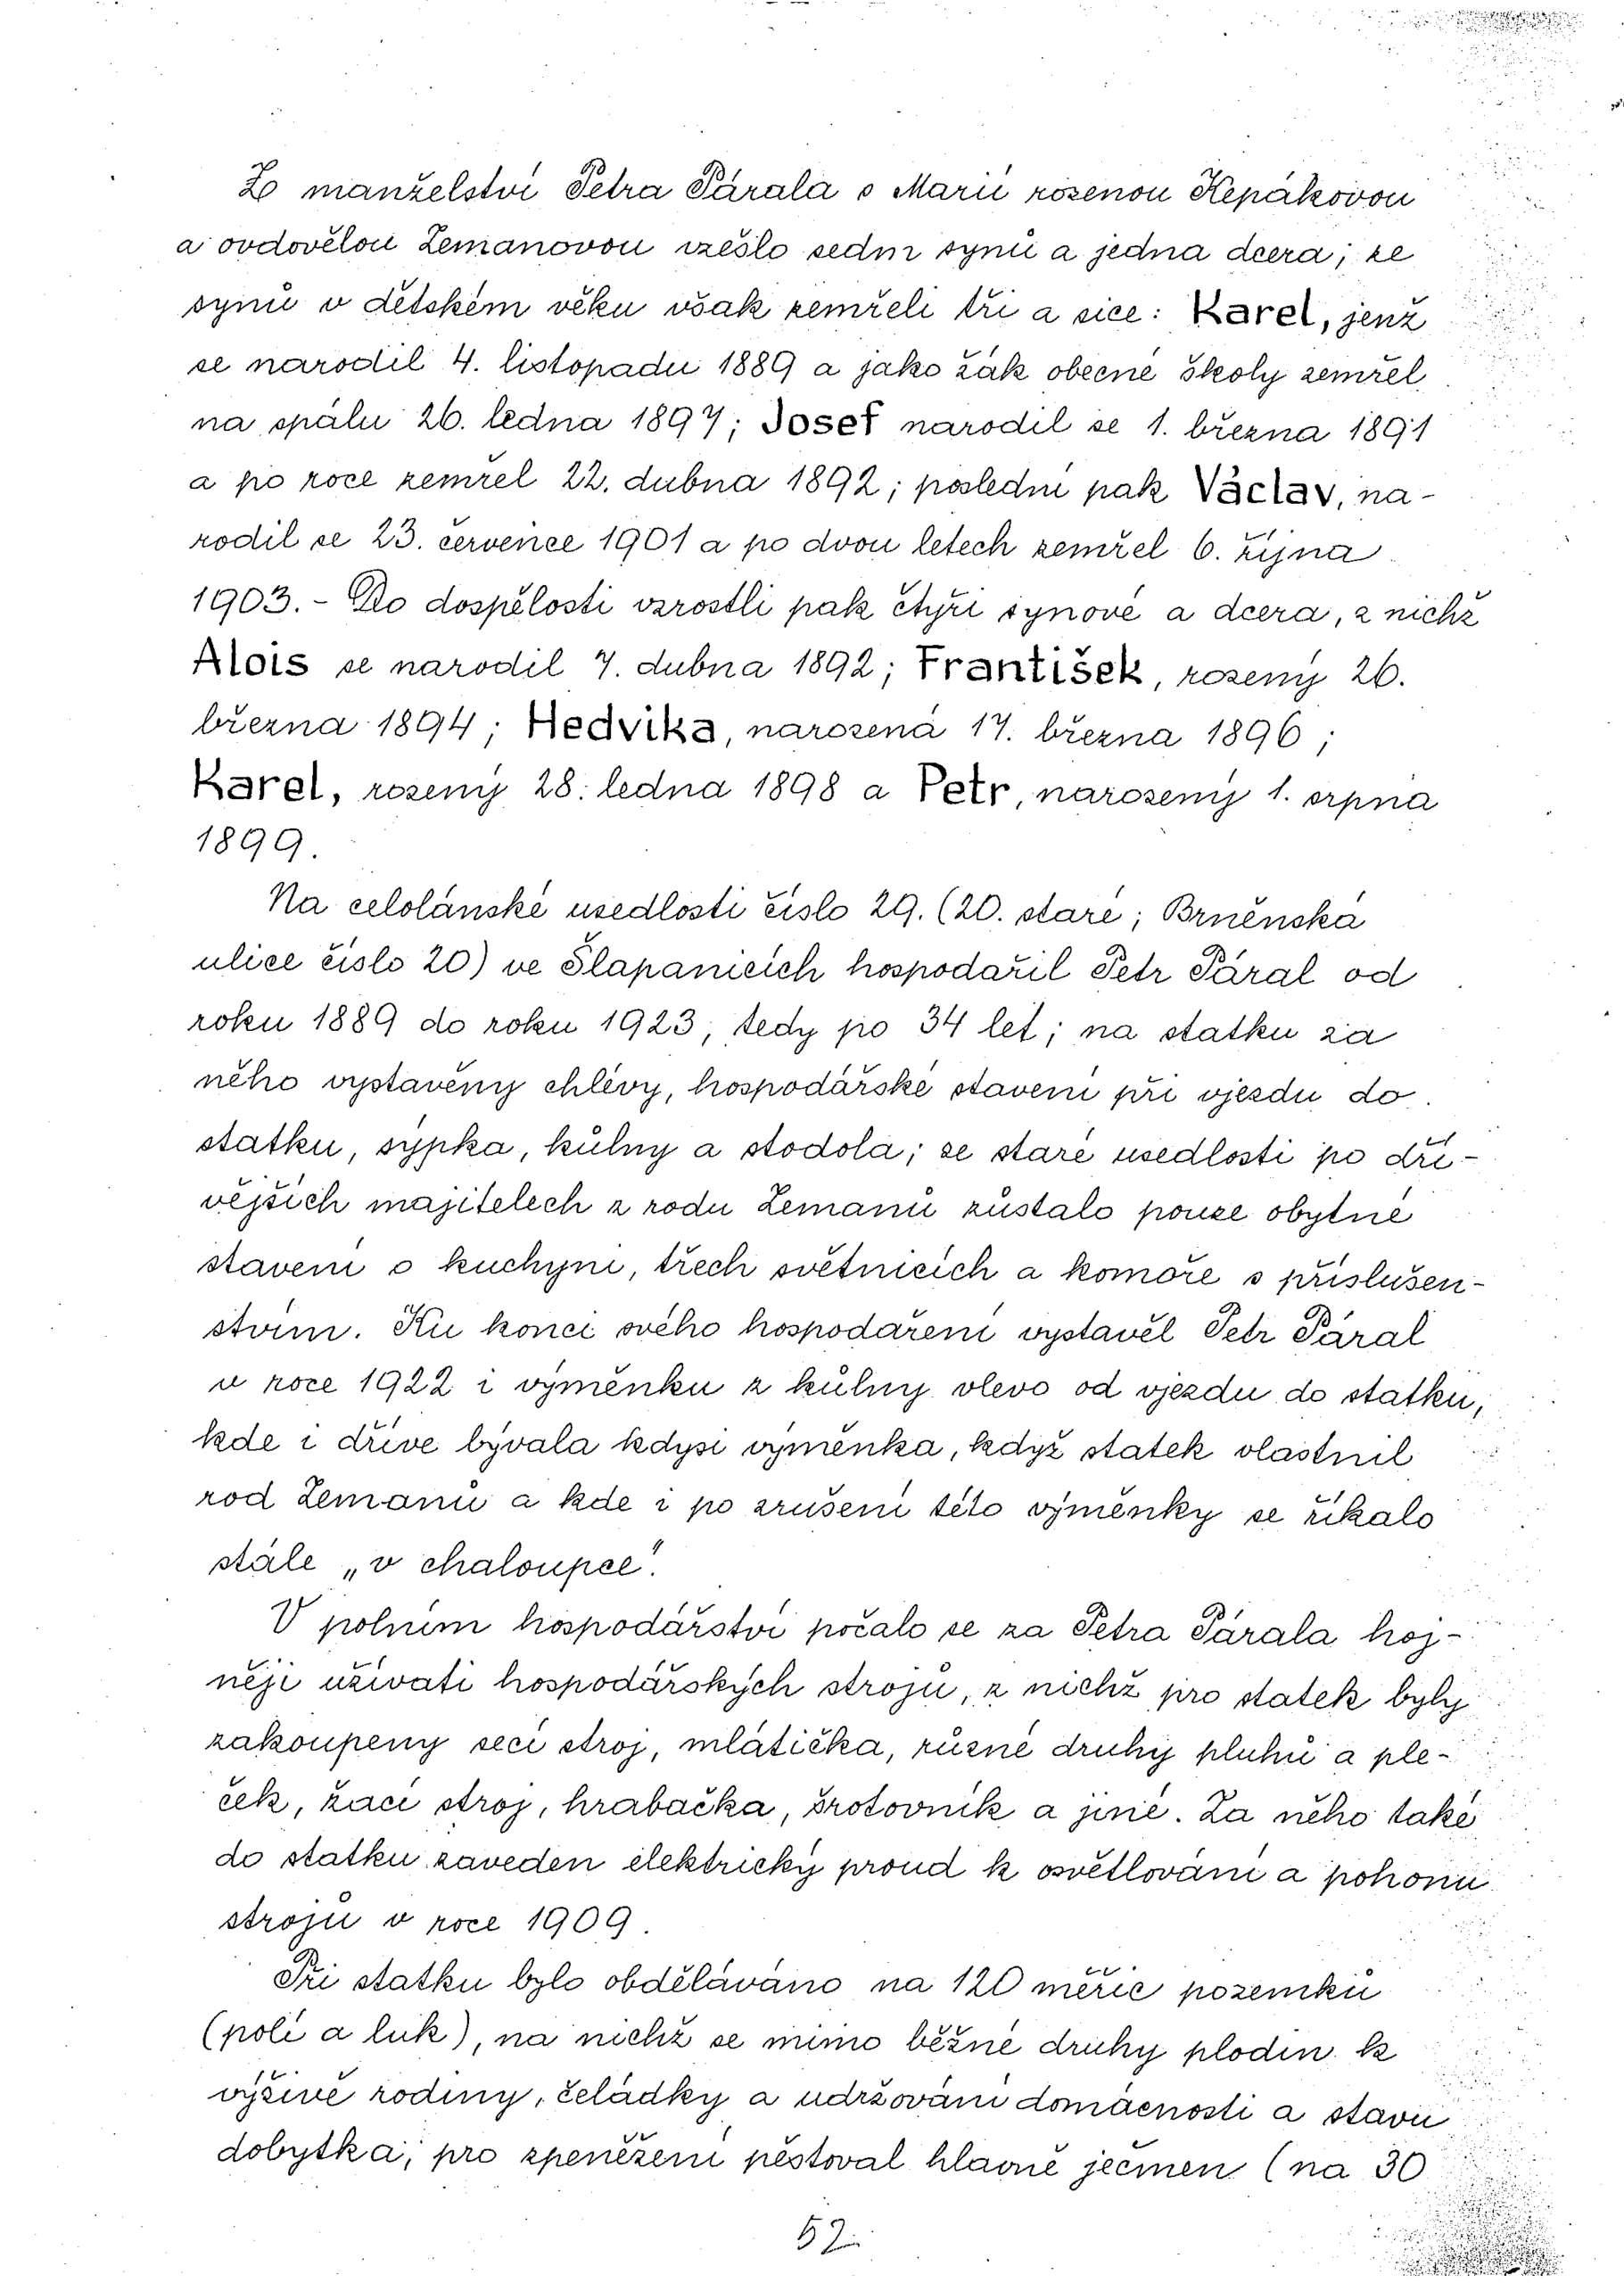 Ze manželství Petra Párala s Marií rozenou Řepákovou
a ovdovělou Zemanovou vzešlo sedm synů a jedna dcera; ze
synů v dětském věku však zemřeli tři a sice: Karel, jenž
se narodil 4. listopadu 1889 a jako žák obecné školy zemřel
na spálu 26. ledna 1897; Josef narodil se 1. března 1891
a po roce zemřel 22. dubna 1892; poslední pak Václav, na-
rodil se 23. července 1901 a po dvou letech zemřel 6. října
1903. - Do dospělosti vzrostli pak čtyři synové a dcera, z nichž
Alois se narodil 7. dubna 1892; František, rozený 26.
března 1894; Hedvika, narozená 17. března 1896;
Karel, rozený 28. ledna 1898 a Petr, narozený 1. srpna
1899.
Na celolánské usedlosti číslo 29. (20. staré; Brněnská
ulice číslo 20) ve Šlapanicích hospodařil Petr Páral od
roku 1889 do roku 1923, tedy po 34 let; na statku za
něho vystavěny chlévy, hospodářské stavení při vjezdu do
statku, sýpka, kůlny a stodola; ze staré usedlosti po dří-
vějších majitelech z rodu Zemanů zůstalo pouze obytné
stavení o kuchyni, třech světnicích a komoře s příslušen-
stvím. Ku konci svého hospodaření vystavěl Petr Páral
v roce 1922 i výměnku z kůlny vlevo od vjezdu do statku,
kde i dříve bývala kdysi výměnka, když statek vlastnil
rod Zemanů a kde i po zrušení této výměnky se říkalo
stále „v chaloupce".
V polním hospodářství počalo se za Petra Párala hoj-
něji užívati hospodářských strojů, z nichž pro statek byly
zakoupeny secí stroj, mlátička, různé druhy pluhů a ple-
ček, žací stroj, hrabačka, šrotovník a jiné. Za něho také
do statku zaveden elektrický proud k osvětlování a pohonu
strojů v roce 1909.
Při statku bylo obděláváno na 120 měřic pozemků
(polí a luk), na nichž se mimo běžné druhy plodin k
výživě rodiny, čeládky a udržování domácnosti a stavu
dobytka, pro zpeněžení pěstoval hlavně ječmen (na 30
52.